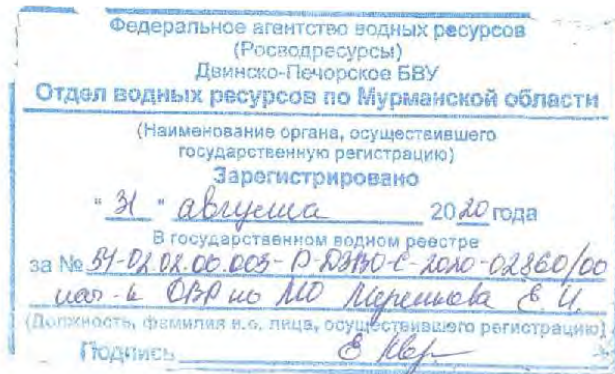 Федеральное агентство водных ресурсов
(Росводресурсы)
Двинско-Печорское БВУ
Отдел водных ресурсов по Мурманской области
(Наименование органа, осуществившего
государственную регистрацию)
Зарегистрировано
"31" августа 2020 года
В государственном водном реестре
за № 51-02.02.00.003-Р-ДЗВО-С-2020-02860/00
нач-к ОВР по МО Е.И.
(Должность, фамилия и.о. лица, осуществившего регистрацию)
Подпись